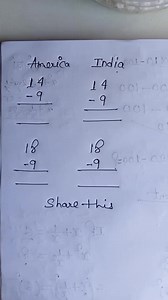 America India
14 14
-9 -9
18 18
-9 -9
Share this